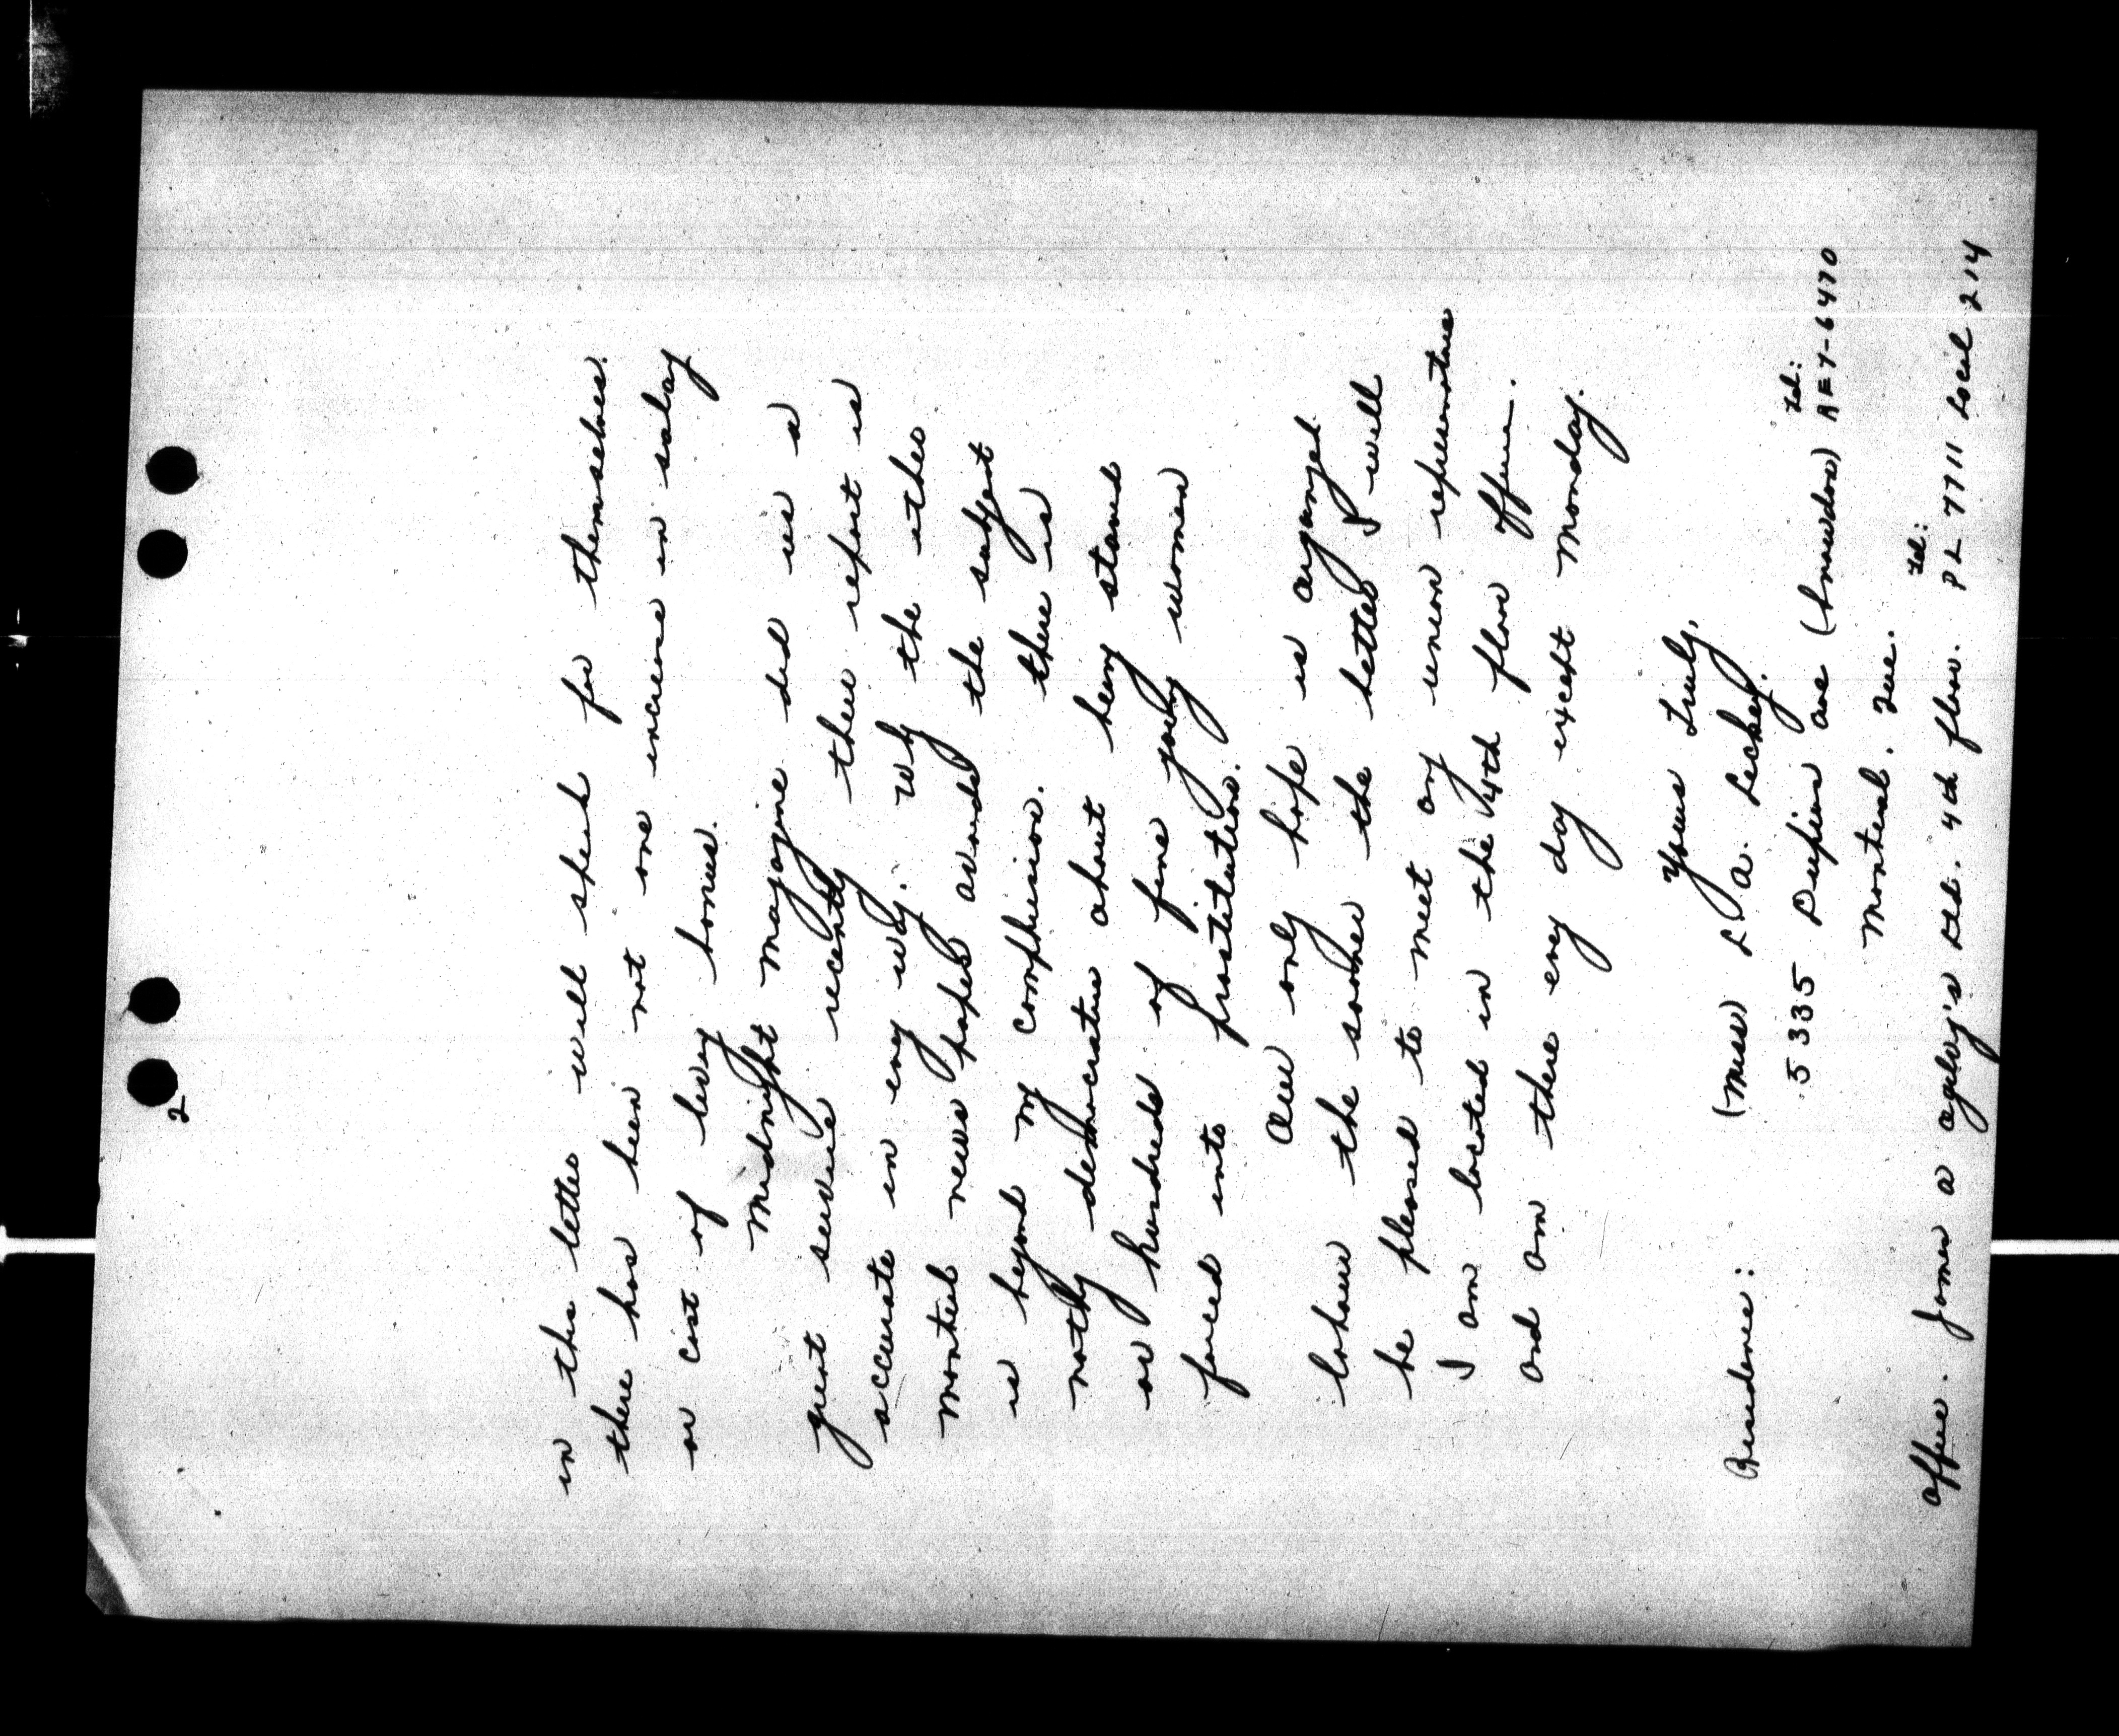 2
in this letter will speak for themselves.
there has been not one increase in salary
or cost of living bonus.
Midnight Magazine did us a
great service recently their report is
accurate in every way. Why the other
Montreal news papers avoids the subject
is beyond my comphension. there is
nothing democratic about being starved
or hundreds of fine young women
forced into prostitution.
Our only hope is organized
labour the sooner the better I will
be pleased to meet any union representative
I am located in the 4th floor office.
and am there every day except Monday.
Yours truly,
(Miss) L. A. Leckey.
Residence: 5335 Ave (Snowdon) Tel: RE7-6470
Montreal. Que.
Office. James a Ogilvy's Ltd. 4th floor. Tel: PL 7711 Local 214